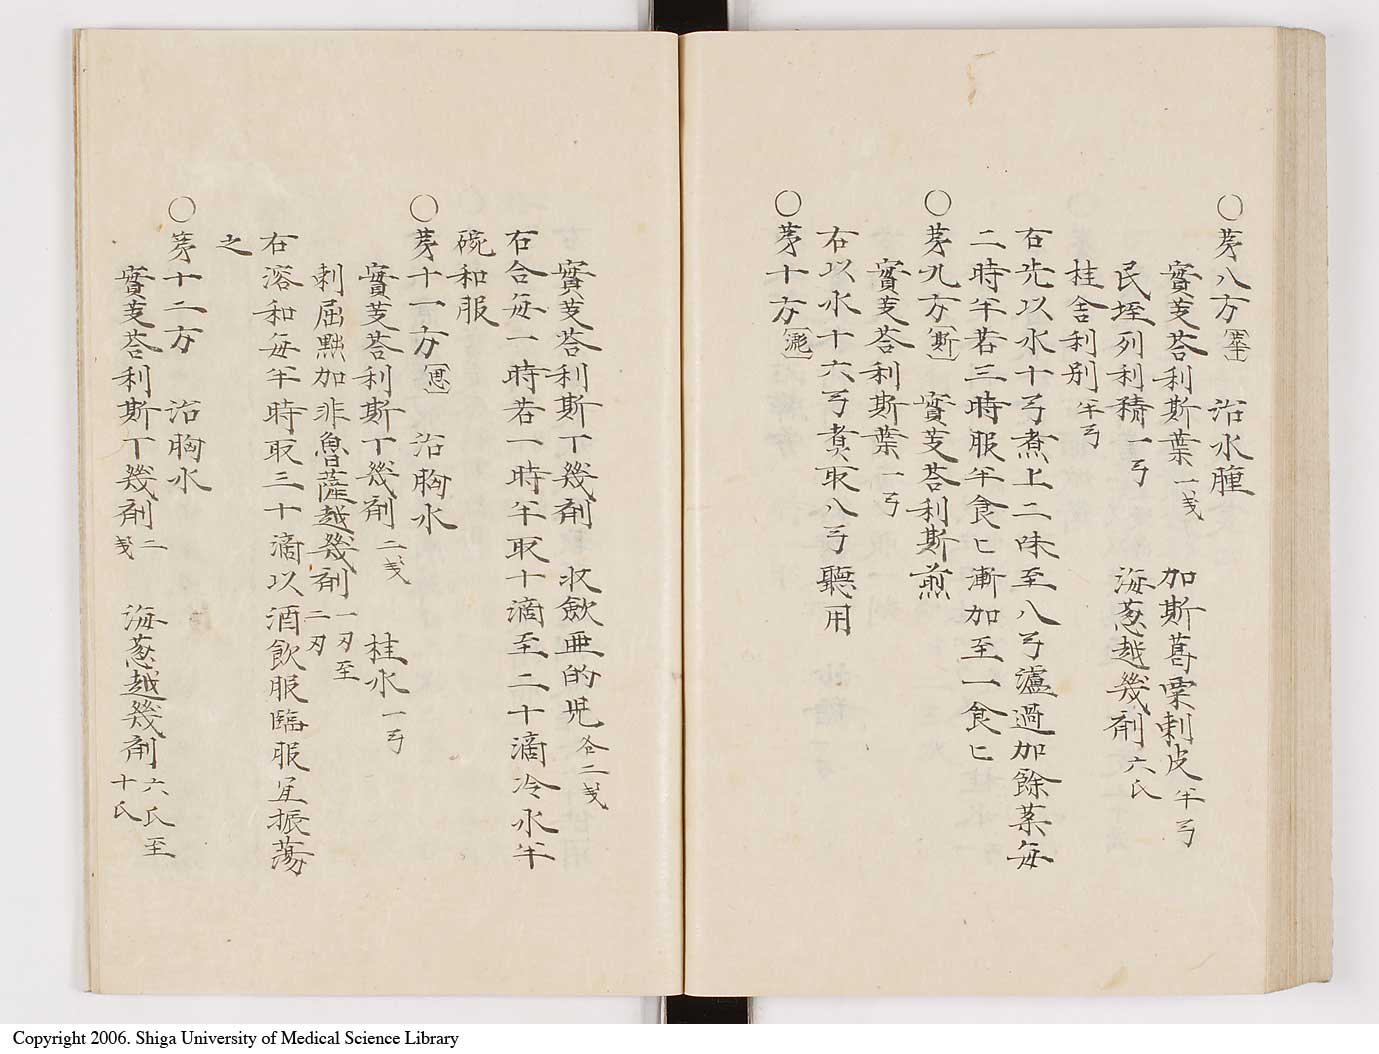 ○第八方 治水腫
實芰荅利斯葉一戔 加斯葛栗刺皮半弓
民垤列利精一弓 海葱越幾剤六氏
桂舍利別半弓
右先以水十弓煮上二味至八弓濾過加餘薬毎
二時半若三時服半食匕漸加至一食匕
○第九方〔斯〕 實芰荅利斯煎
實芰荅利斯葉一弓
右以水十六弓煮取八弓聽用
○第十方
實芰荅利斯丁幾剤 収歛亜的児各二戔
右合毎一時若一時半取十滴至二十滴冷水半
碗和服
○第十一方〔思〕 治胸水
實芰荅利斯丁幾剤二戔 桂水一弓
刺屈謨加非魯薩越幾剤一刃至二刃
右溶和毎半時取三十滴以酒飲服臨服宜振蕩
之
○第十二方 治胸水
實芰荅利斯丁幾剤二戔 海葱越幾剤六氏至十氏
Copyright 2006. Shiga University of Medical Science Library